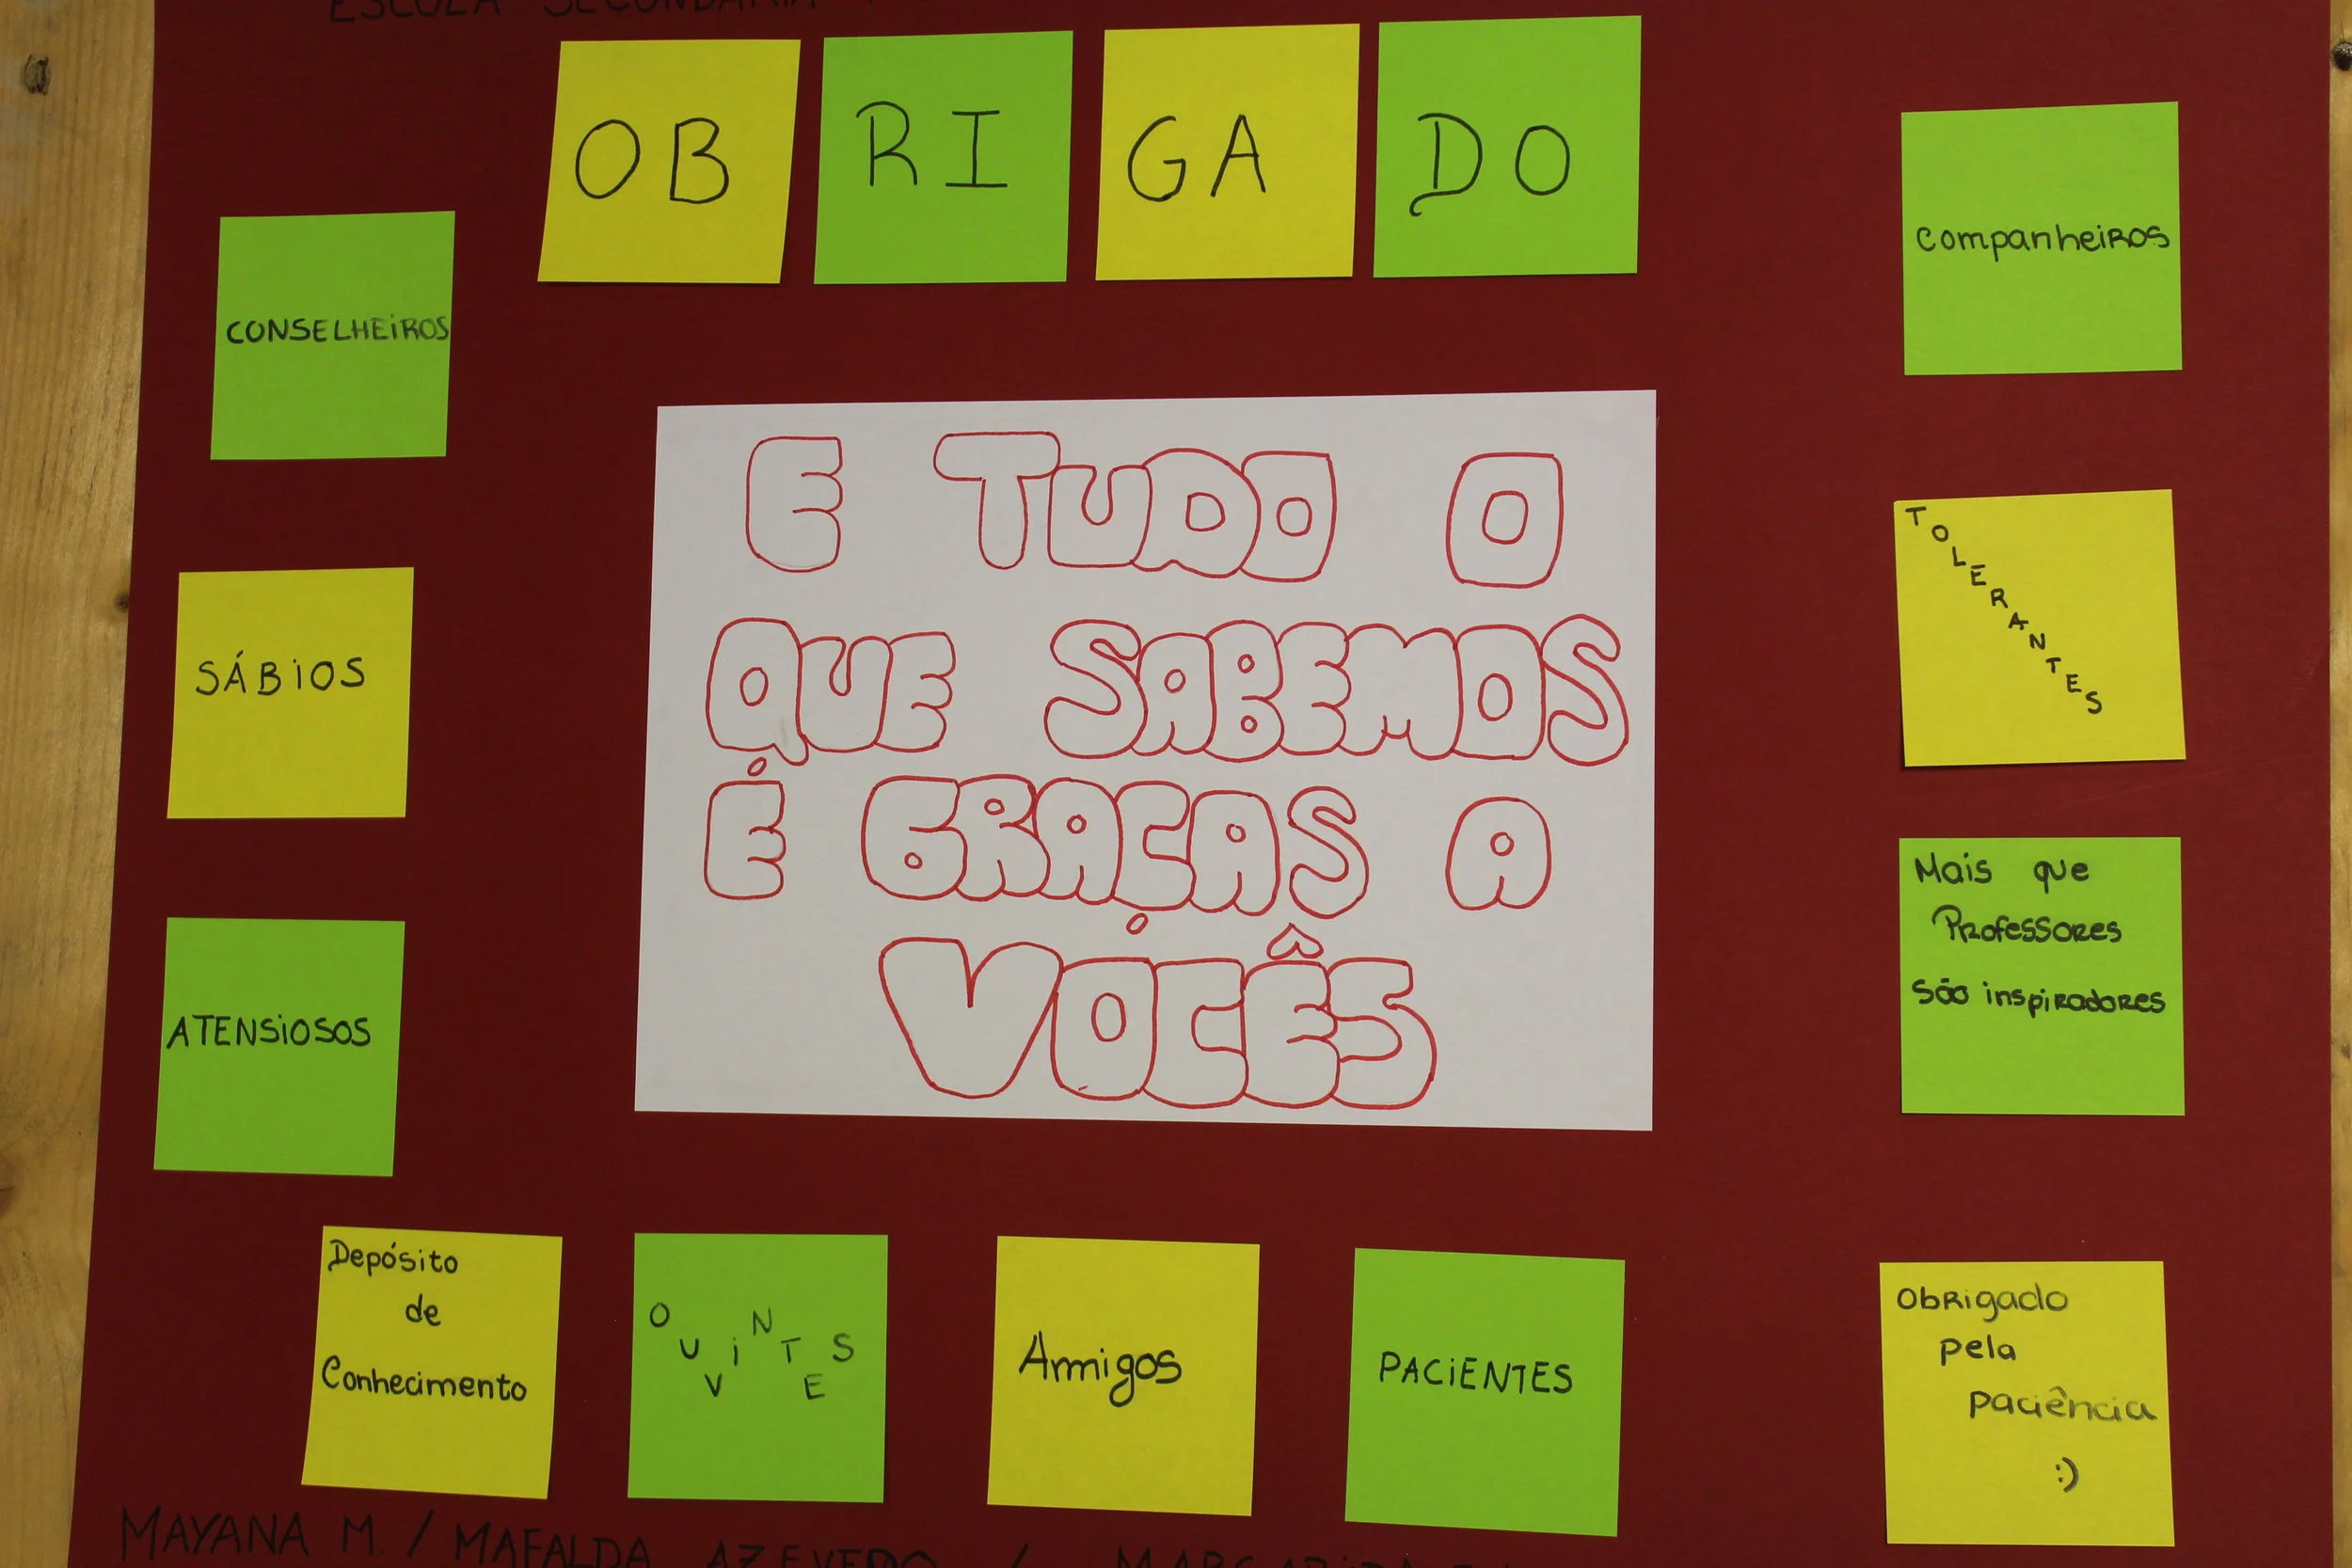 ESCOLA SECUNDÁRIA
OB RI GA DO
CONSELHEIROS
SÁBIOS
ATENSIOSOS
E TUDO O
QUE SABEMOS
É GRAÇAS A
VOCÊS
Companheiros
TOLERANTES
Mais que
Professores
são inspiradores
Depósito
de
Conhecimento
OUVINTES
Amigos
PACIENTES
Obrigado
pela
paciência
:)
MAYANA M. / MAFALDA AZEVEDO / MARGARIDA